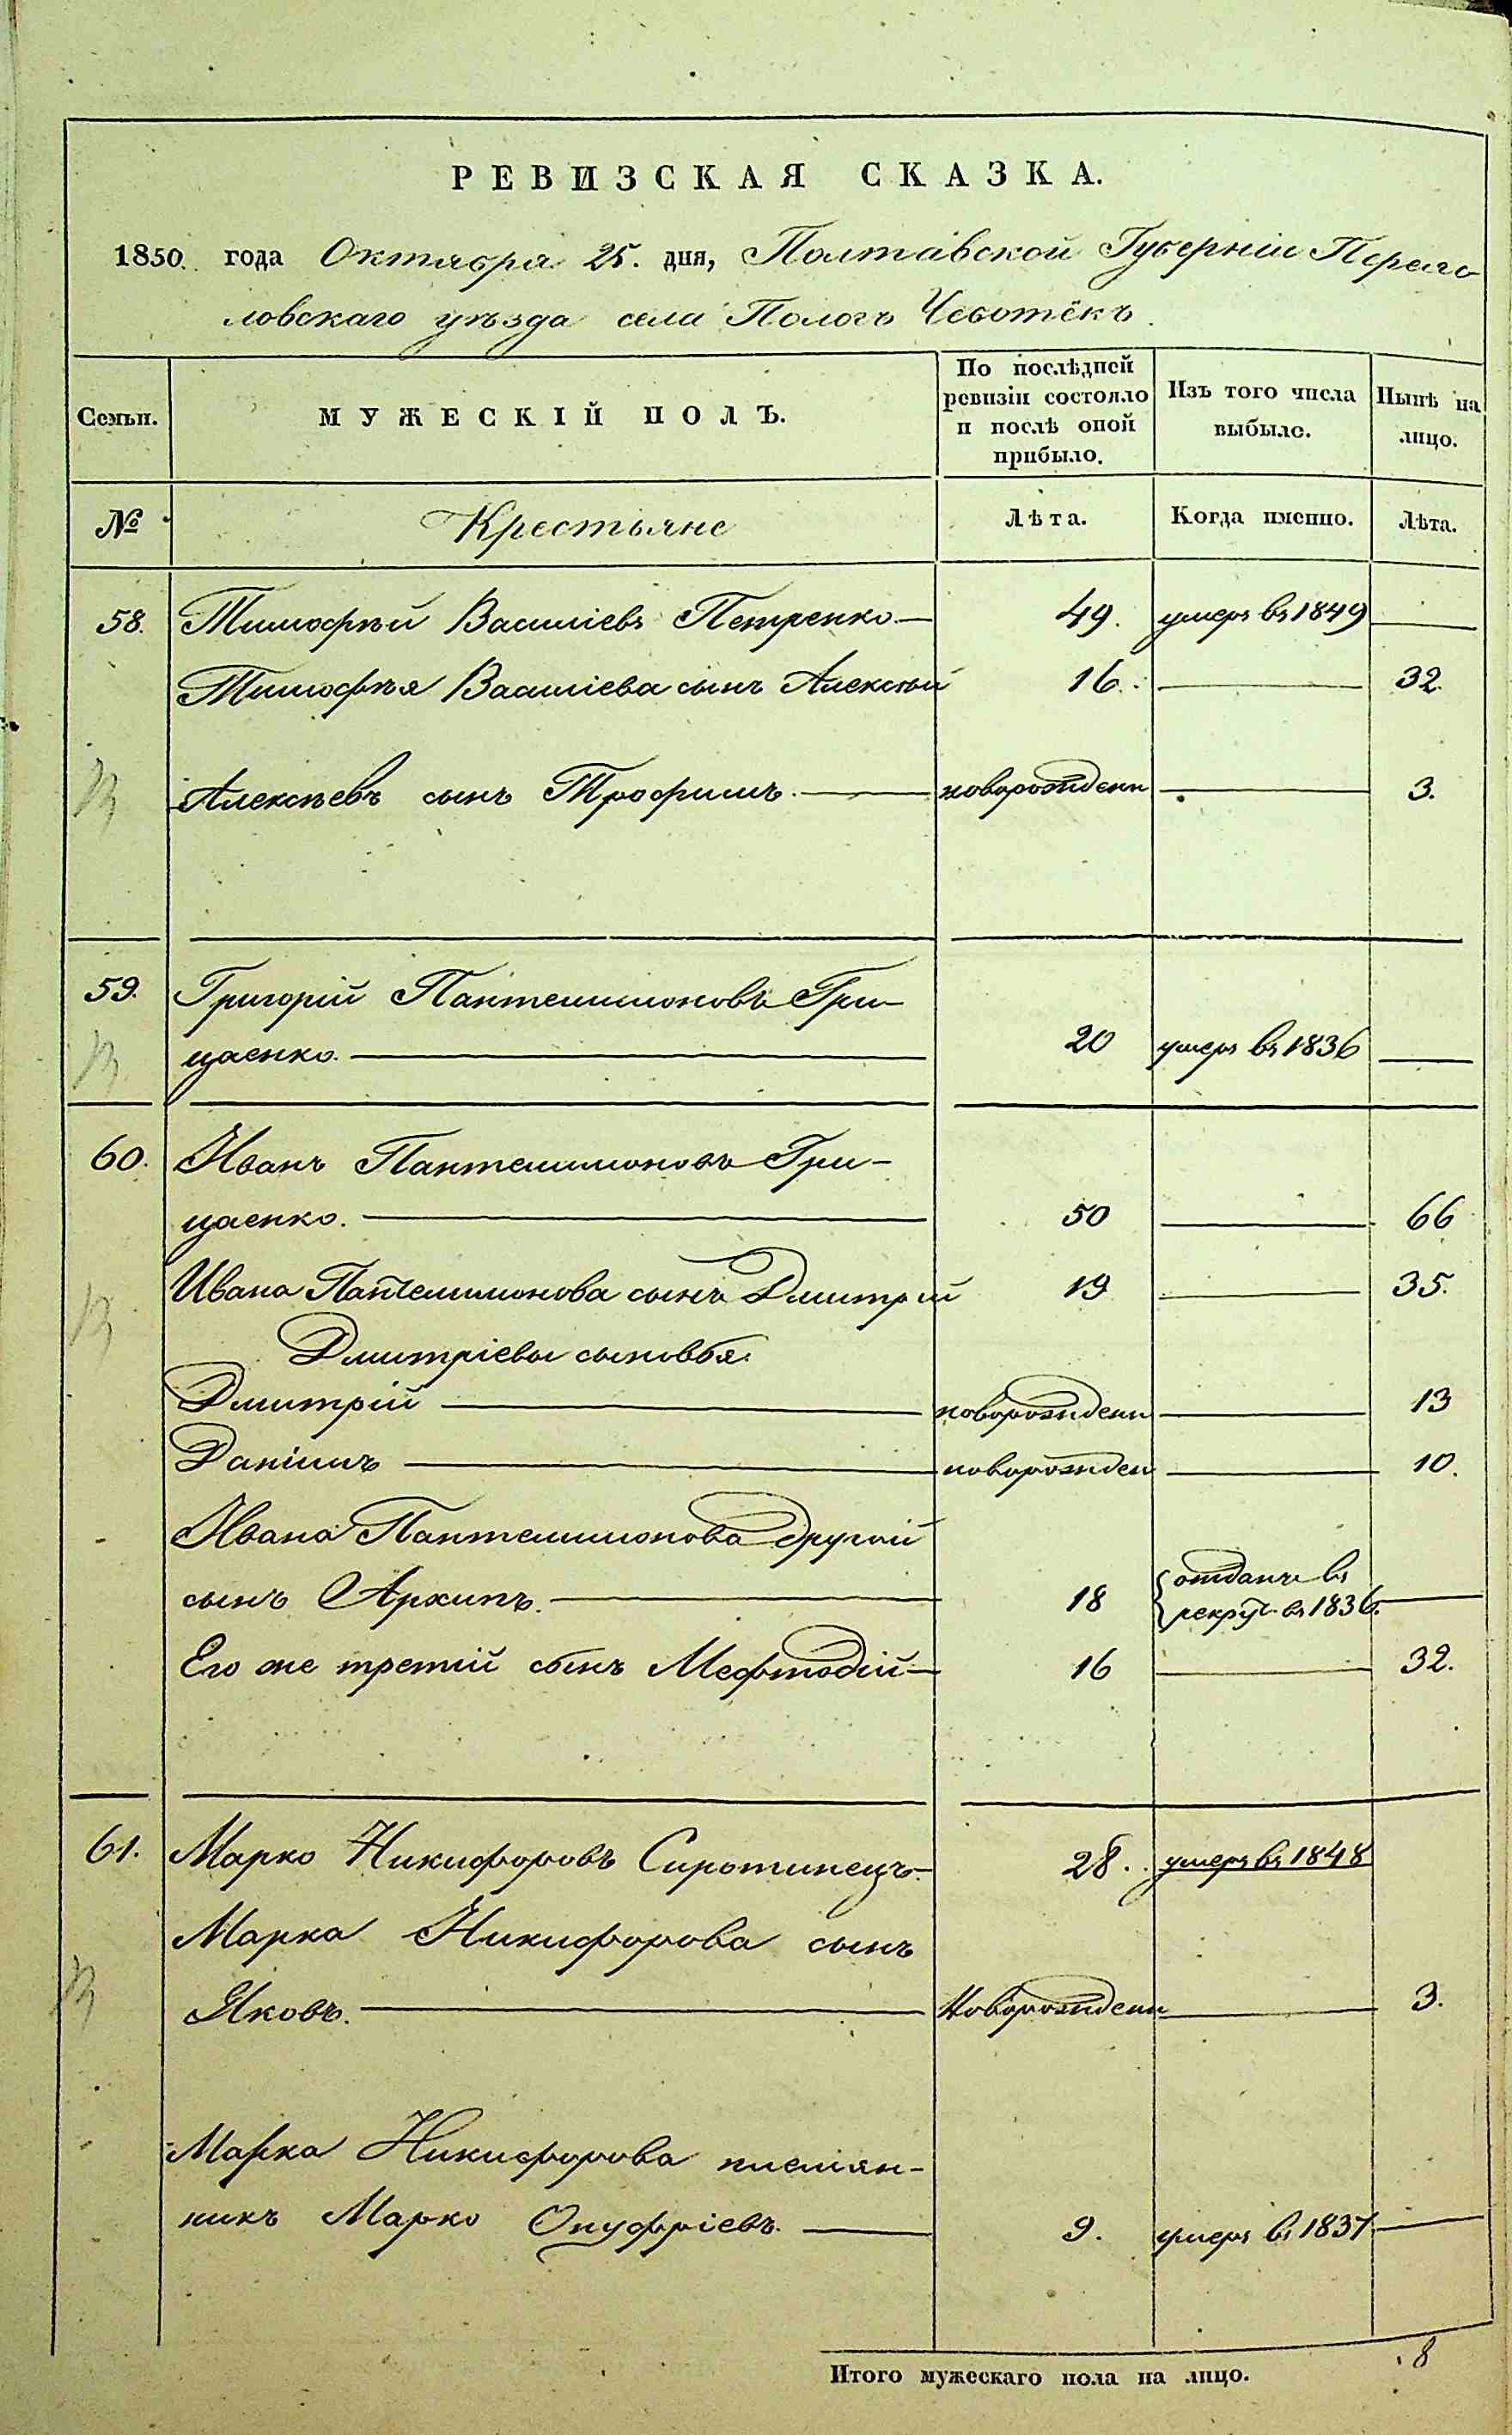 РЕВИЗСКАЯ СКАЗКА.
1850. года Октября 25. дня, Полтавской Губерніи Переяс
ловскаго уѣзда села Пологъ Чеботёкъ.
Семьи.
МУЖЕСКІЙ ПОЛЪ.
По послѣдней
ревизіи состояло
и послѣ оной
прибыло.
Изъ того числа
выбыло.
Нынѣ на
лицо.
№
Крестьяне
Лѣта.
Когда именно.
Лѣта.
58. Тимофѣй Василіевъ Петренко — 49. умеръ въ 1849 —
Тимофѣя Василіева сынъ Алексѣй 16. — 32.
Алексѣевъ сынъ Трофимъ. — новорожденн — 3.
59. Григорій Пантелимоновъ Гри-
цаенко. — 20 умеръ въ 1836 —
60. Иванъ Пантелимоновъ Гри-
цаенко. — 50 — 66
Ивана Пантелимонова сынъ Дмитрій 19 — 35.
Дмитріевы сыновья:
Дмитрій — новорожденн — 13
Даніилъ — новорожден — 10.
Ивана Пантелимонова другой
сынъ Архипъ. — 18 отданъ въ
рекрут. въ 1836. —
Его же третій сынъ Мефтодій — 16 — 32.
61. Марко Никифоровъ Сиротинецъ — 28. умеръ въ 1848
Марка Никифорова сынъ
Яковъ. — Новорожденн — 3.
Марка Никифорова племян-
никъ Марко Онуфріевъ. — 9. умеръ въ 1837 —
Итого мужескаго пола на лицо. 8